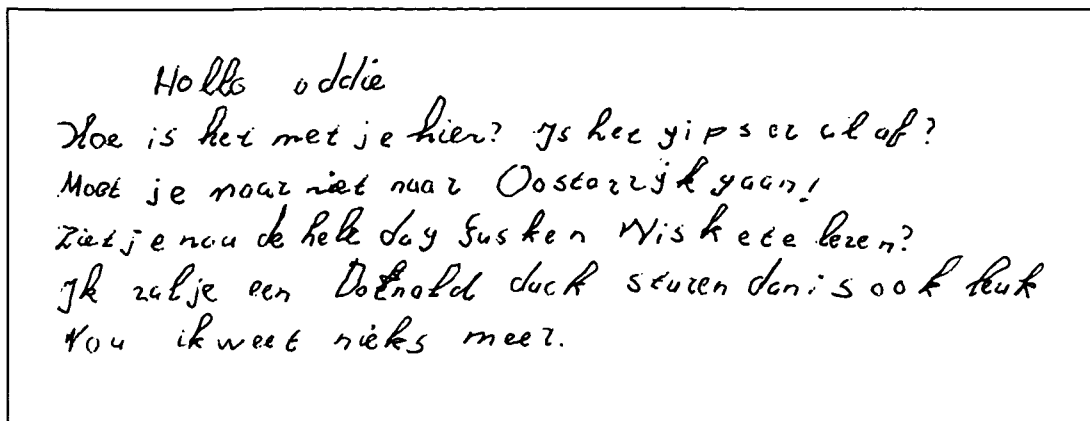 Hollo oddie
Hoe is het met je hier? Is het gips er al af?
Moet je maar niet naar Oostarrijk gaan!
Ziet je nou de hele dag Suske n Wiskete lezen?
Ik zal je een Dotnald duck sturen dan is ook leuk
Nou ik weet nieks meer.